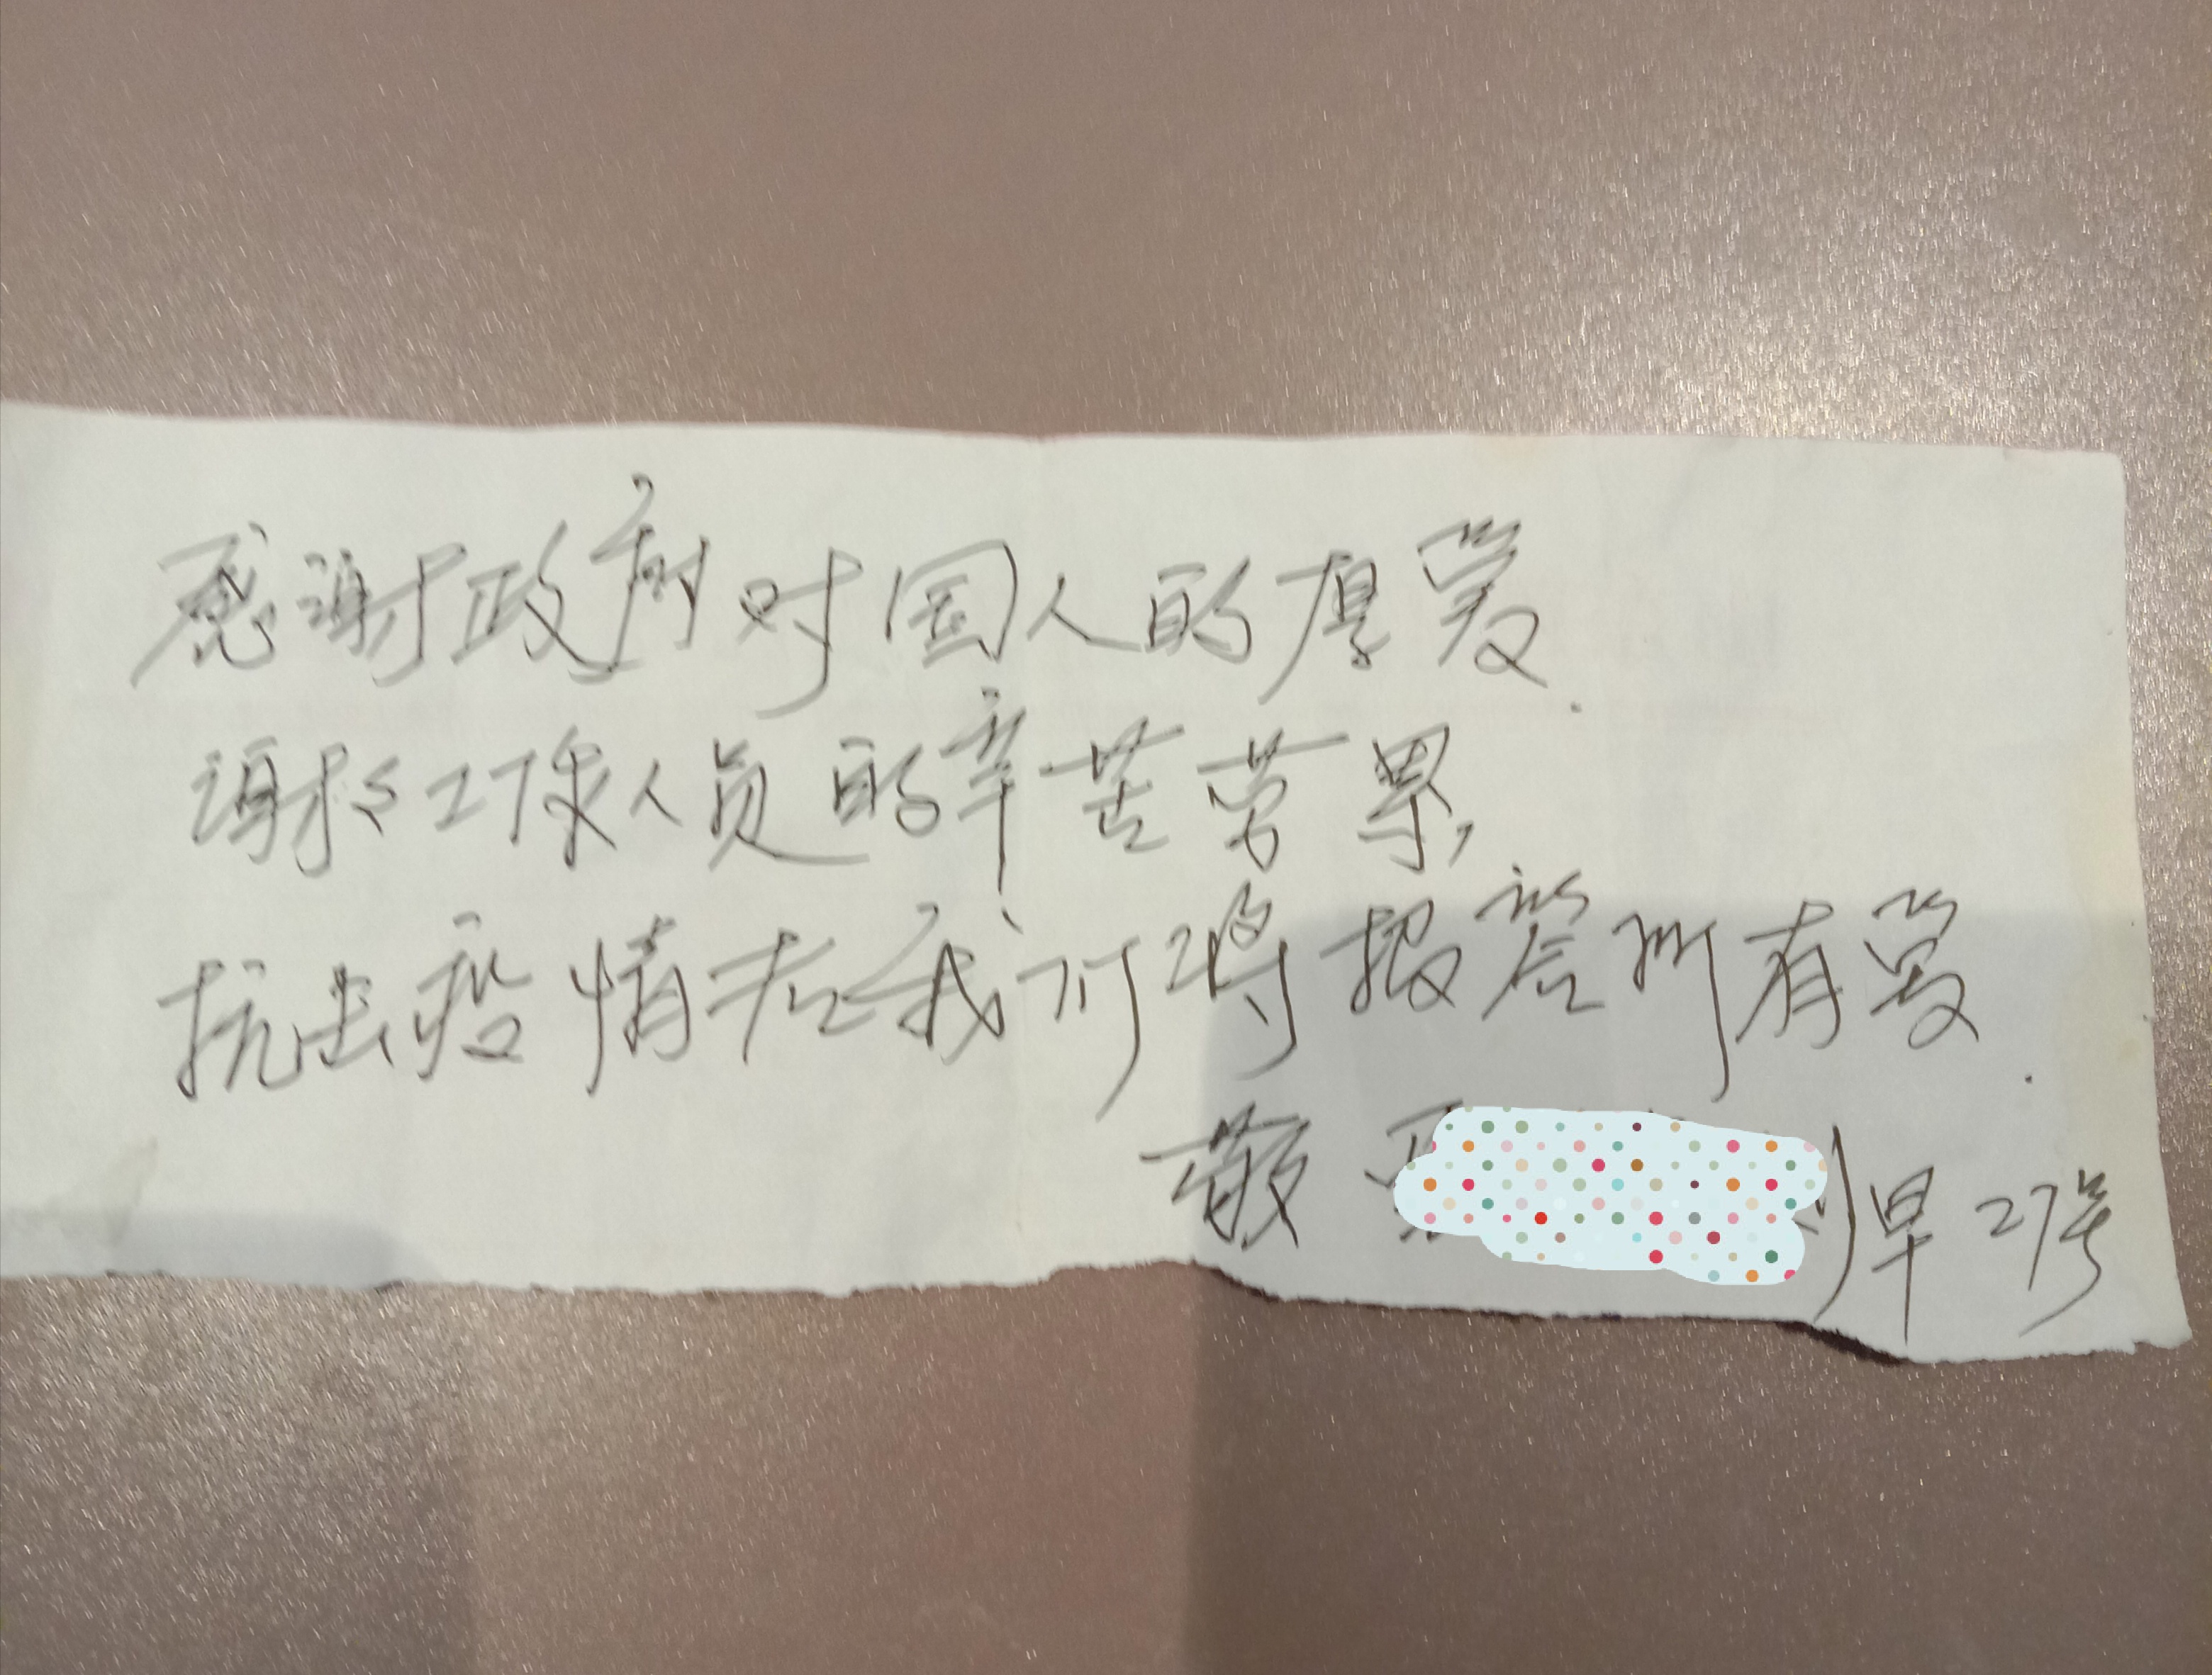 感谢政府对国人的厚爱.
谢谢工作人员的辛苦劳累,
抗击疫情后我们将报答所有爱.
敬 早 27号